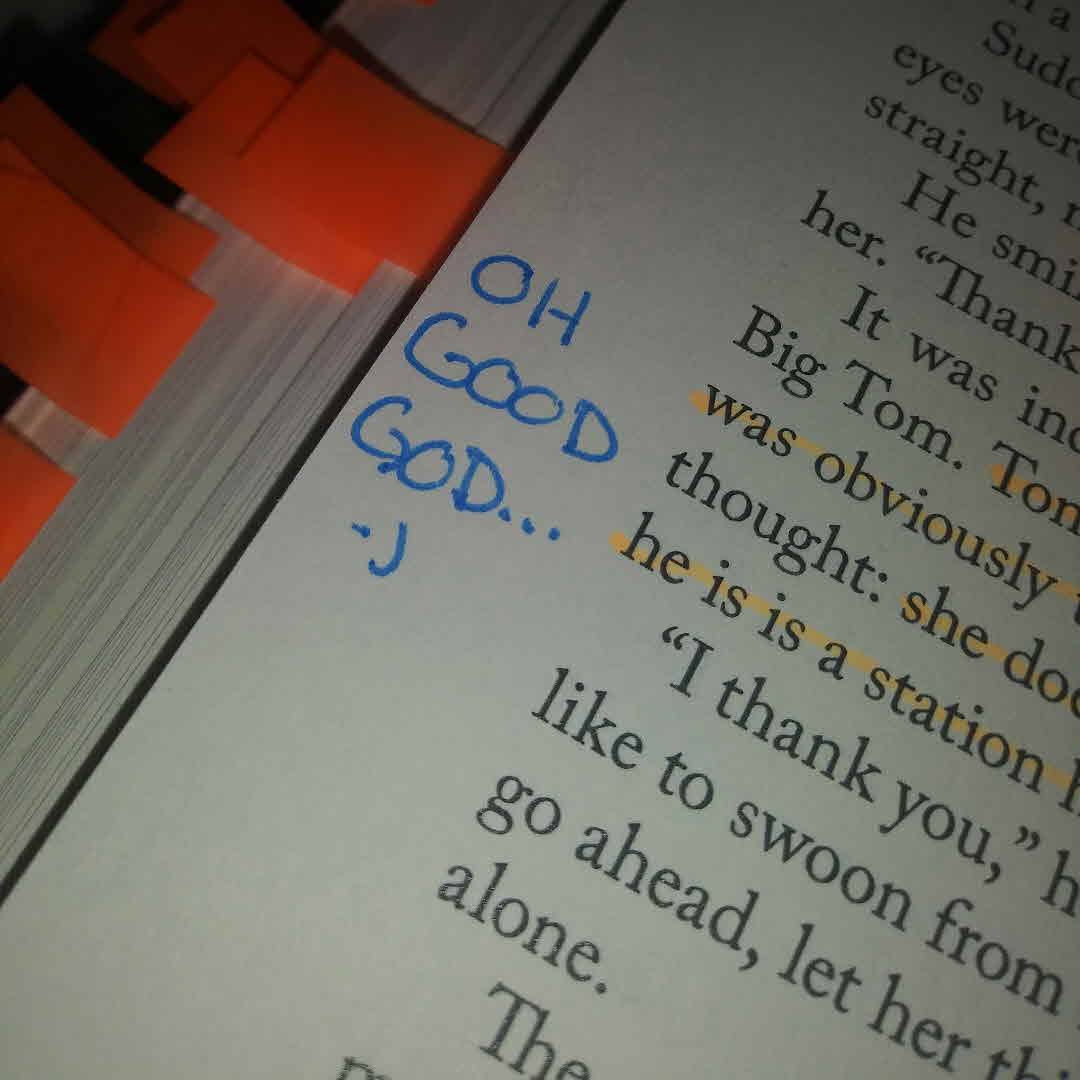 n a
Sudd
eyes were
straight, n
He smi
her. “Thank
It was ind
Big Tom. Tom
was obviously
thought: she doe
he is is a station h
“I thank you,” h
like to swoon from
go ahead, let her thi
alone.
The
OH
GOOD
GOD...